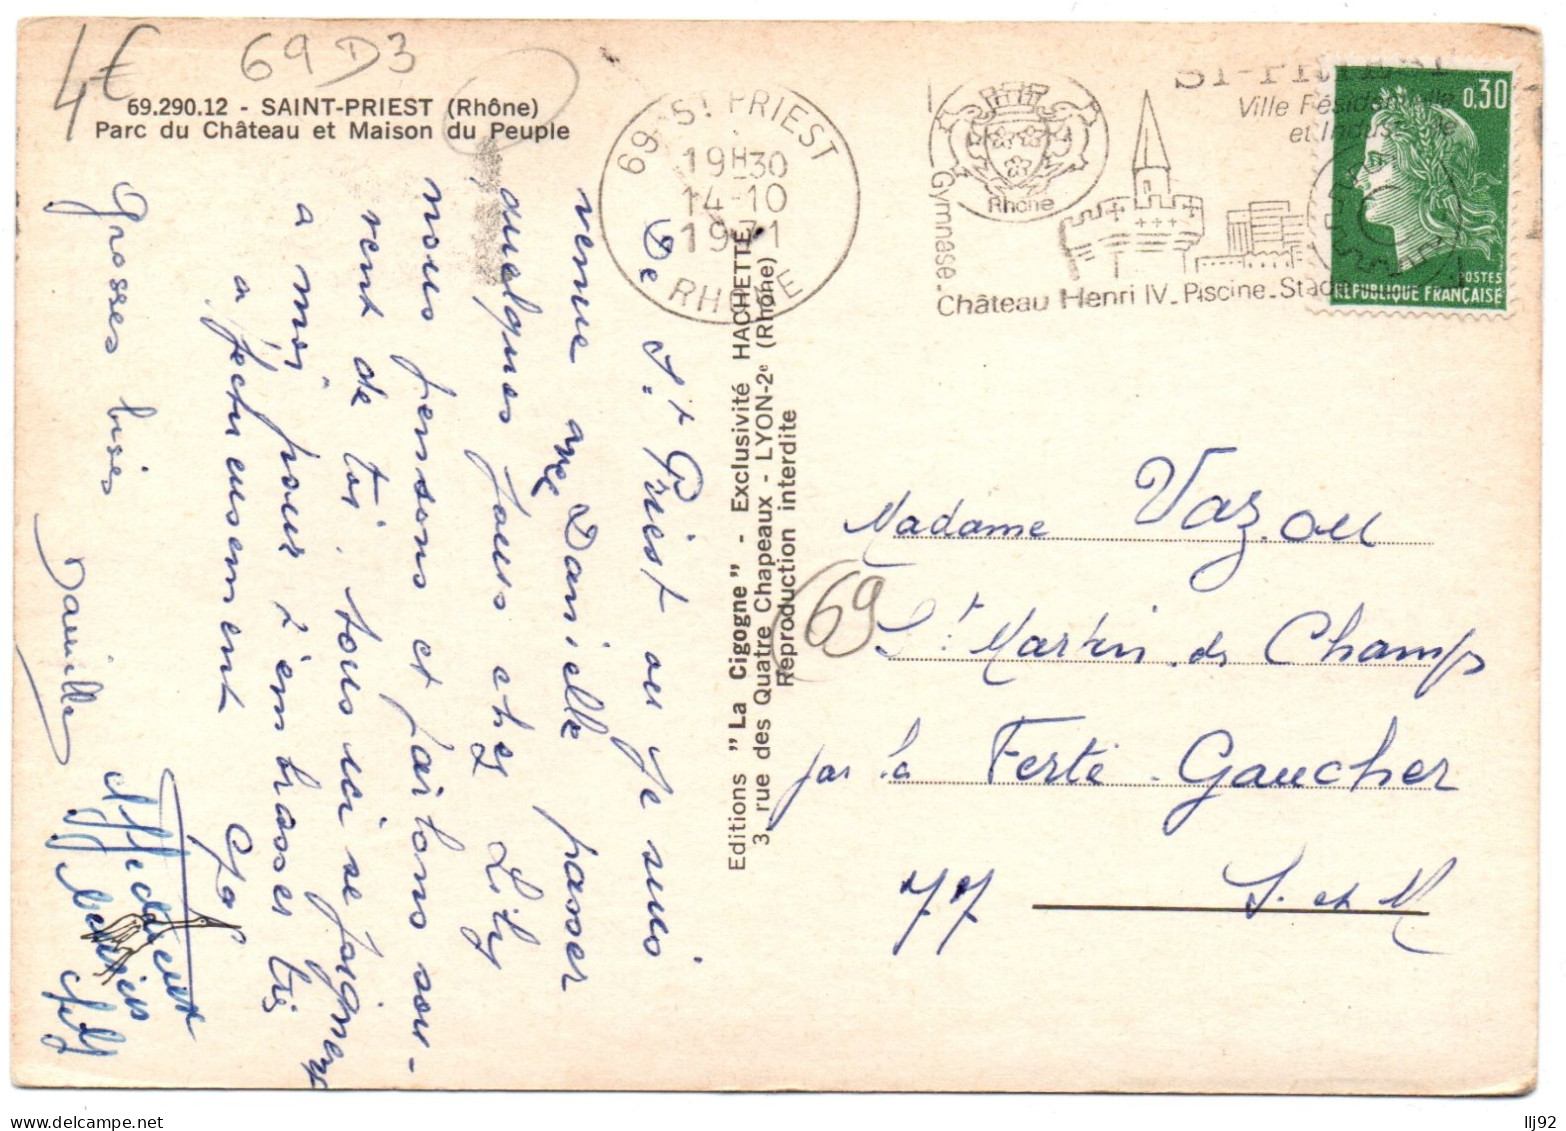 4€
69D3
69.290.12 - SAINT-PRIEST (Rhône)
Parc du Château et Maison du Peuple
69 ST PRIEST
19H30
14-10
1971
RHÔNE
ST-PRIEST
Ville Résidentielle
et Industrielle
Rhône
Gymnase. Château Henri IV. Piscine. Stade
0,30
POSTES
REPUBLIQUE FRANÇAISE
De St Priest ou je suis
venue avec Danielle passer
quelques jours chez Lily
nous pensons et parlons sou-
vent de toi. tous ici se joignent
a moi pour t'embrasser très
affectueusement
Grosses bises
Danielle
Affectueusement
Editions "La Cigogne" - Exclusivité HACHETTE
3, rue des Quatre Chapeaux - LYON-2e (Rhône)
Reproduction interdite
69
Madame Vazou
St Martin des Champs
par la Ferté-Gaucher
77 S. et M
delcampe.net
llj92